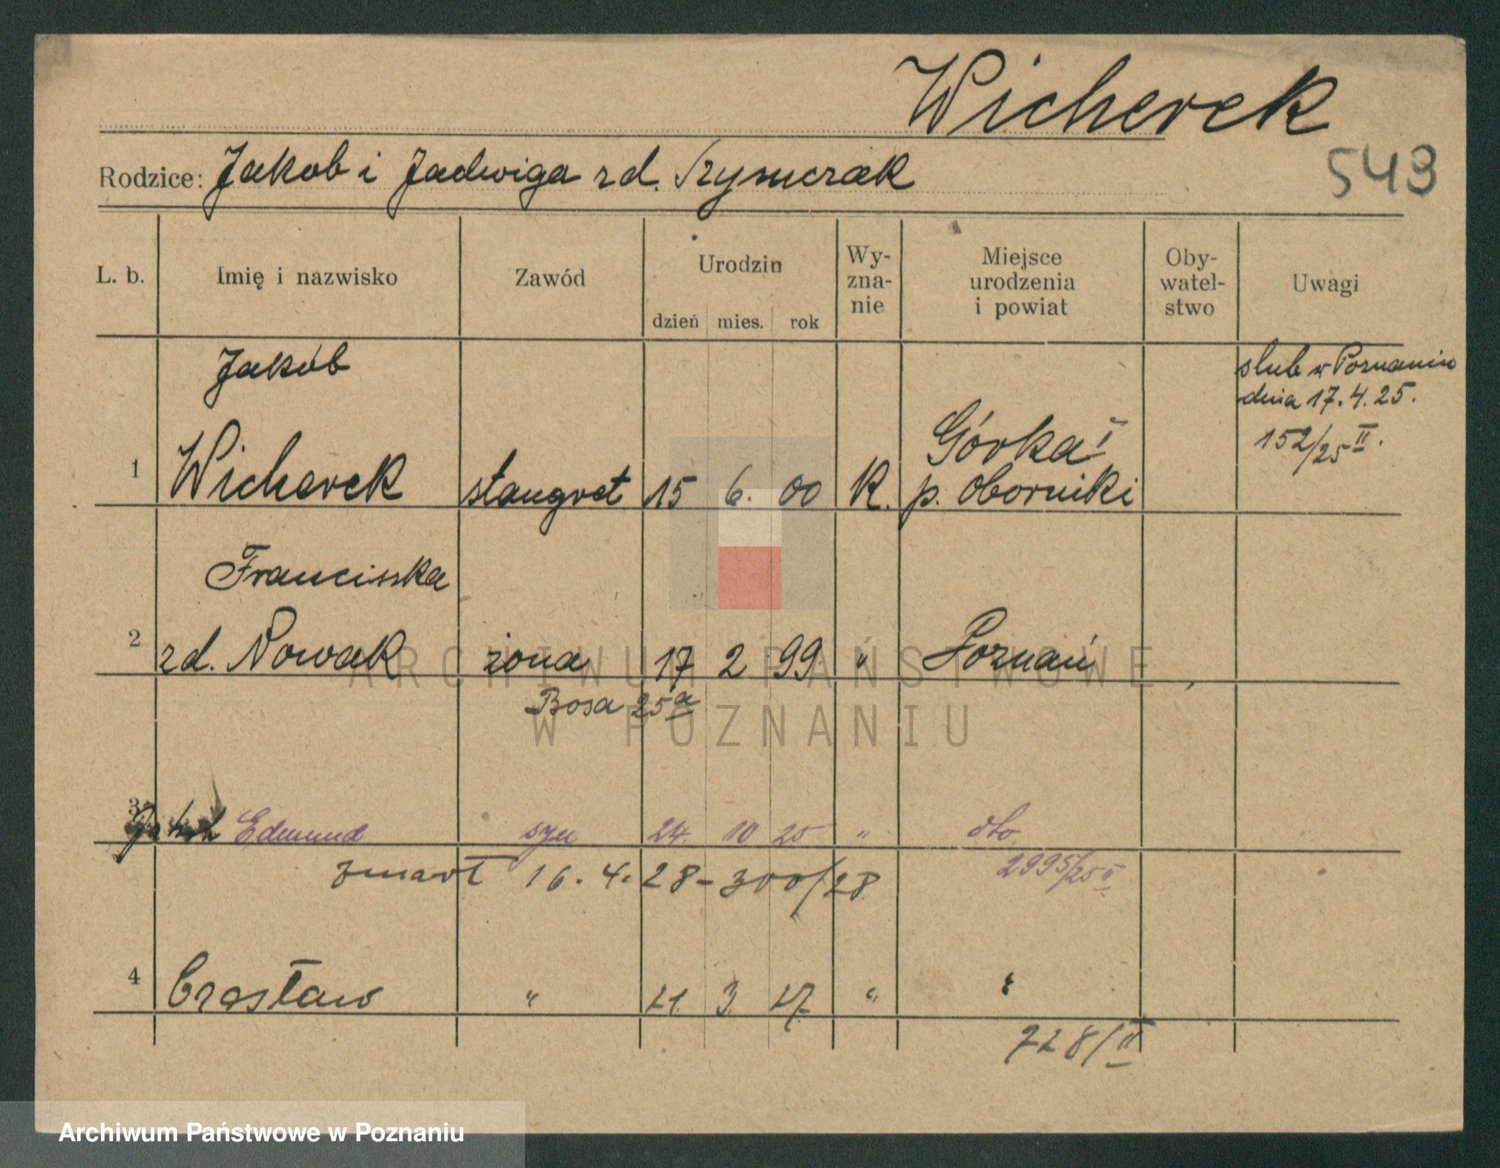 Wicherek
543
Rodzice: Jakob i Jadwiga zd. Szymczak
L. b. Imię i nazwisko Zawód Urodzin dzień mies. rok Wy-zna-nie Miejsce urodzenia i powiat Oby-watel-stwo Uwagi
Jakób
slub w Poznaniu
dnia 17.4.25.
152/25 II.
1 Wicherek stangret 15 6. 00 K. Górka I
p. Oborniki
Franciszka
2 zd. Nowak żona 17 2 99 " Poznań
Bosa 25a
3 Edmund syn 24. 10 25 " dto.
2995/25 II
zmarł 16.4.28 - 300/28
4 Czesław " 21. 3. 27. " "
728/II
ARCHIWUM PAŃSTWOWE
W POZNANIU
Archiwum Państwowe w Poznaniu